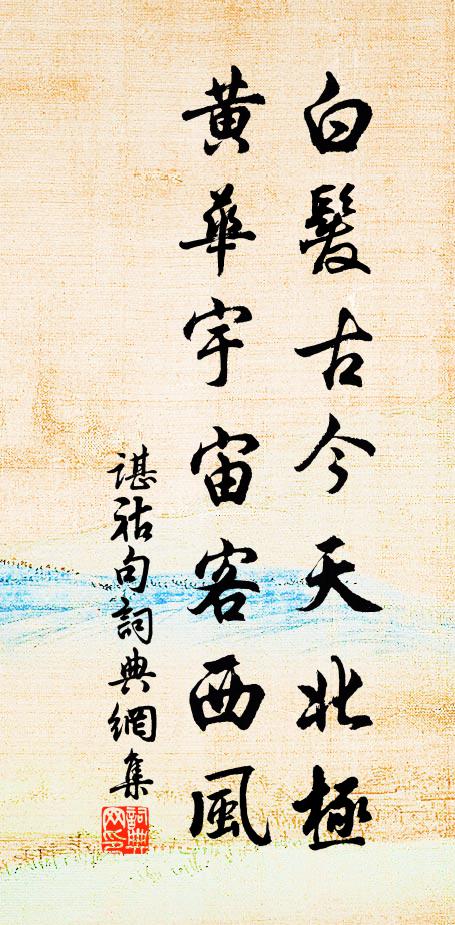 白髮古今天北極
黃華宇宙客西風
諶祜句詞典網集
詞典網印